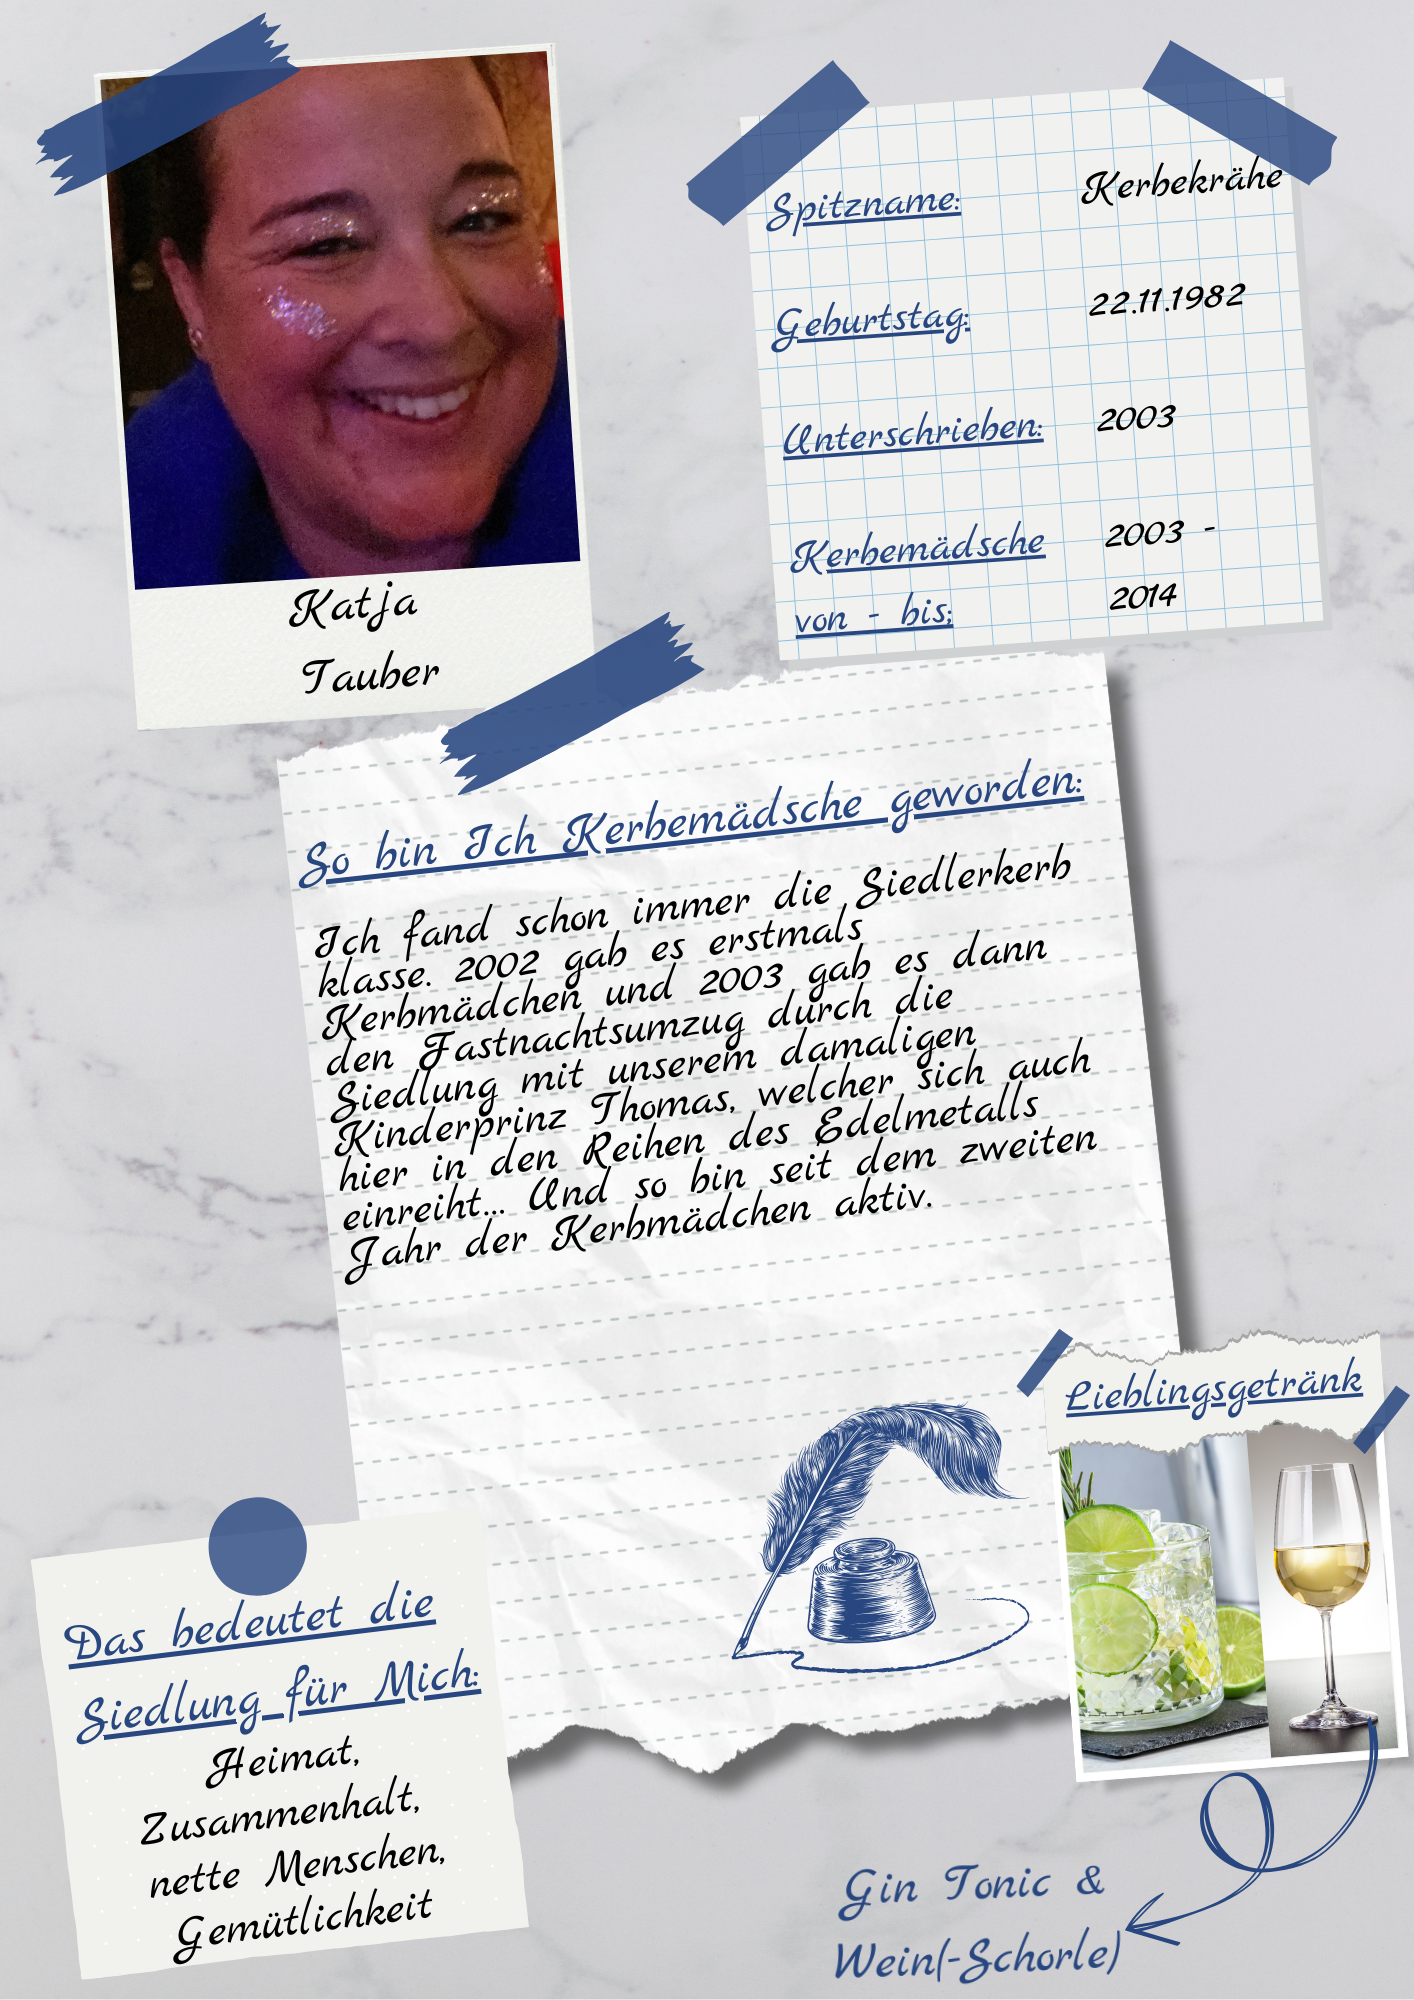 Katja
Tauber
Spitzname: Kerbekrähe
Geburtstag: 22.11.1982
Unterschrieben: 2003
Kerbemädsche 2003 -
von - bis; 2014
So bin Ich Kerbemädsche geworden:
Ich fand schon immer die Siedlerkerb
klasse. 2002 gab es erstmals
Kerbmädchen und 2003 gab es dann
den Fastnachtsumzug durch die
Siedlung mit unserem damaligen
Kinderprinz Thomas, welcher sich auch
hier in den Reihen des Edelmetalls
einreiht... Und so bin seit dem zweiten
Jahr der Kerbmädchen aktiv.
Lieblingsgetränk
Das bedeutet die
Siedlung für Mich:
Heimat,
Zusammenhalt,
nette Menschen,
Gemütlichkeit
Gin Tonic &
Wein(-Schorle)